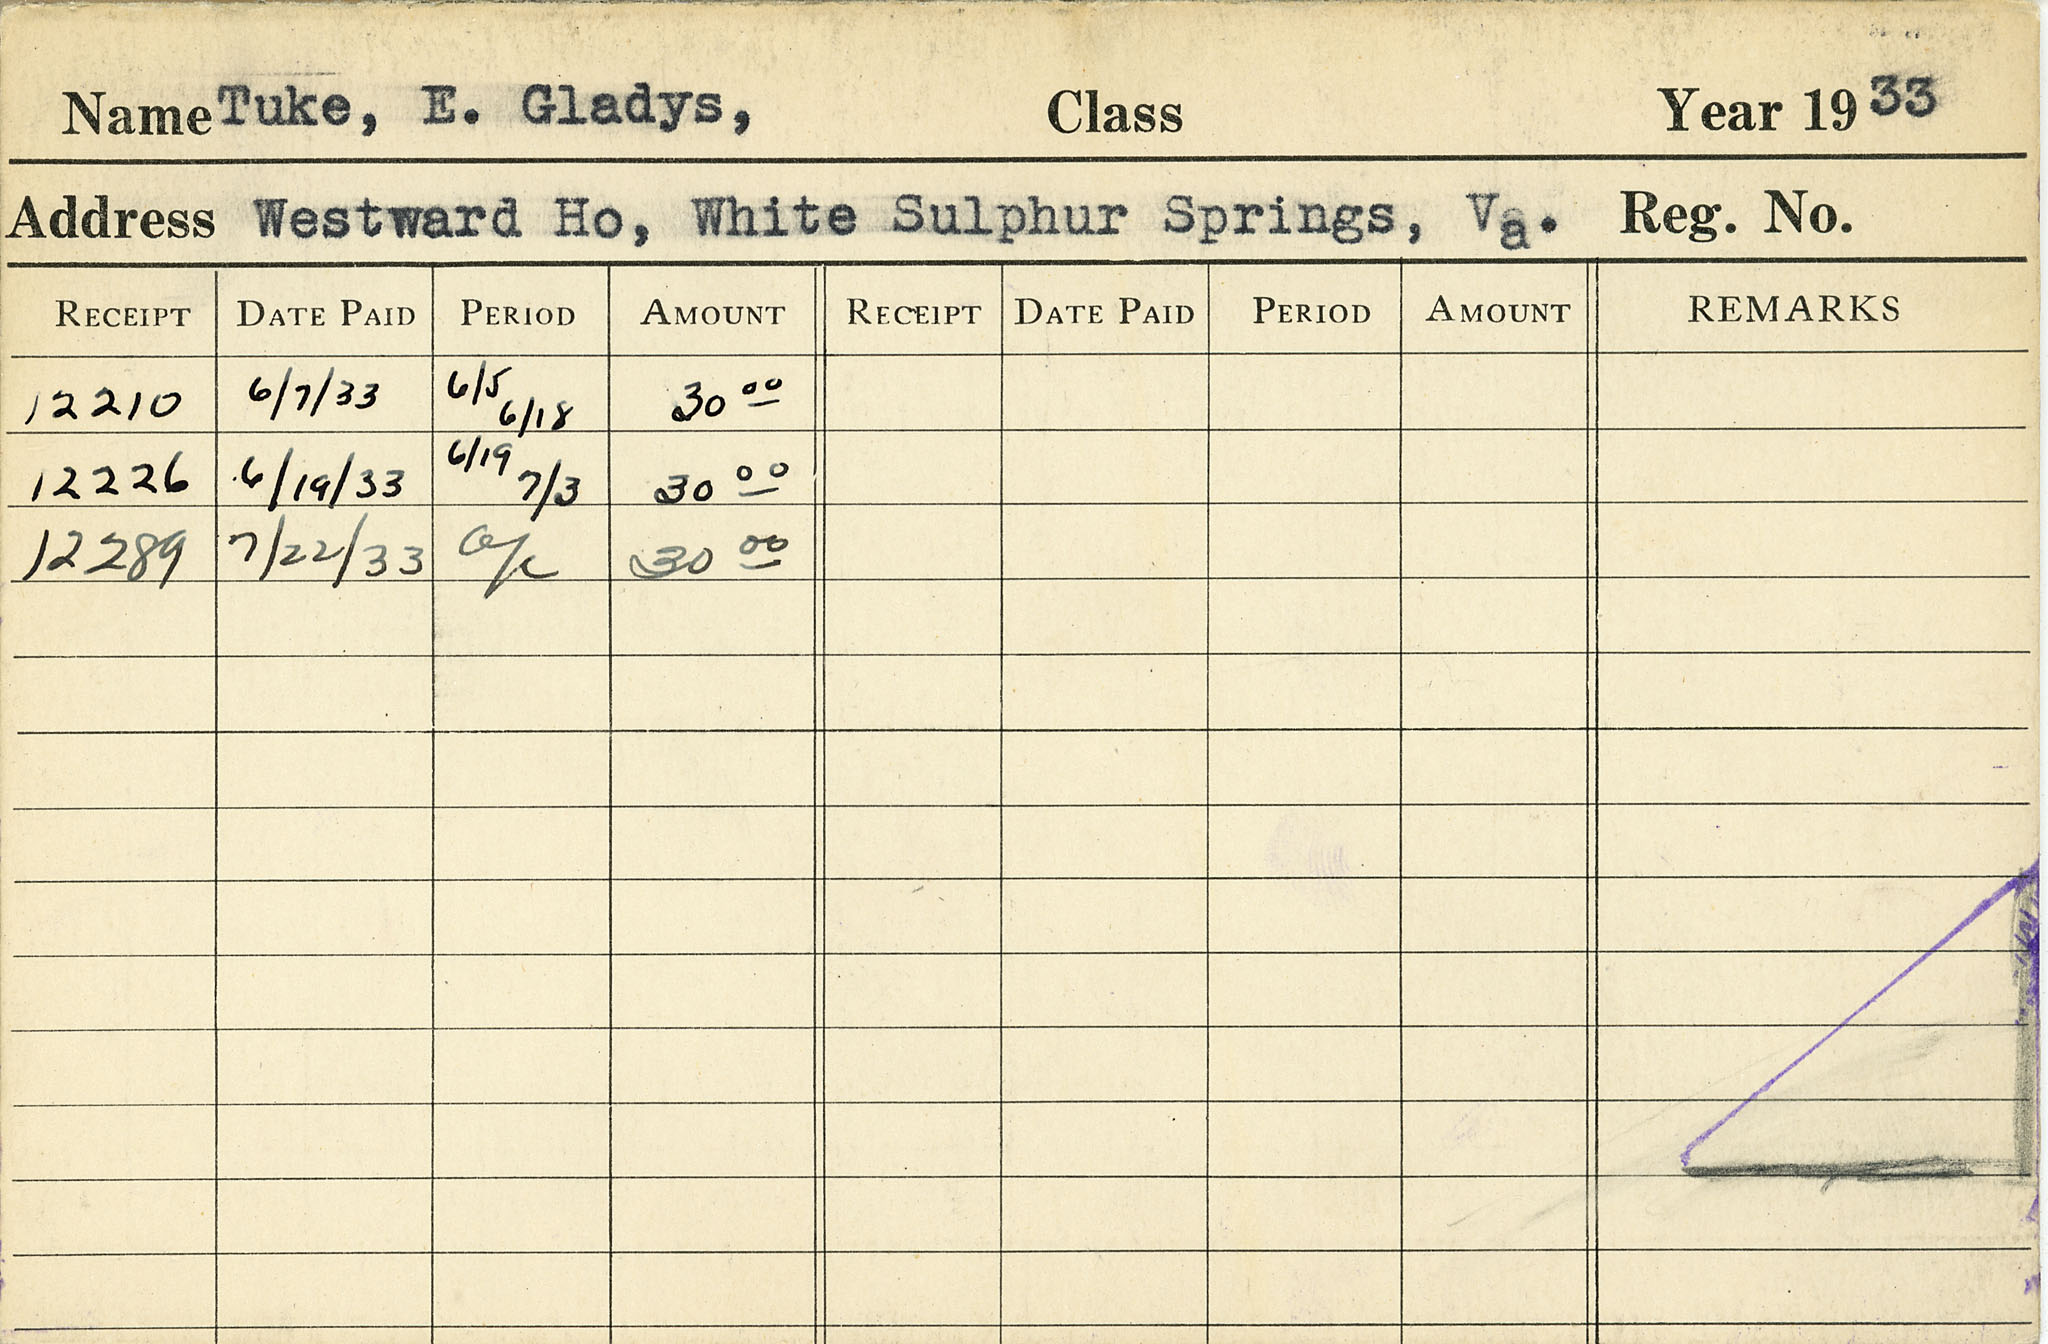 Name Tuke, E. Gladys, Class Year 1933
Address Westward Ho, White Sulphur Springs, Va. Reg. No.
RECEIPT DATE PAID PERIOD AMOUNT RECEIPT DATE PAID PERIOD AMOUNT REMARKS
12210 6/7/33 6/5 6/18 30 00
12226 6/19/33 6/19 7/3 30 00
12289 7/22/33 a/c 30 00